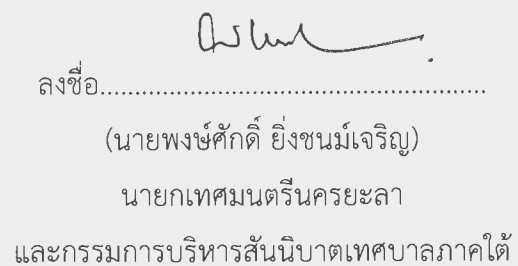 ลงชื่อ.......................................................
(นายพงษ์ศักดิ์ ยิ่งชนม์เจริญ)
นายกเทศมนตรีนครยะลา
และกรรมการบริหารสันนิบาตเทศบาลภาคใต้